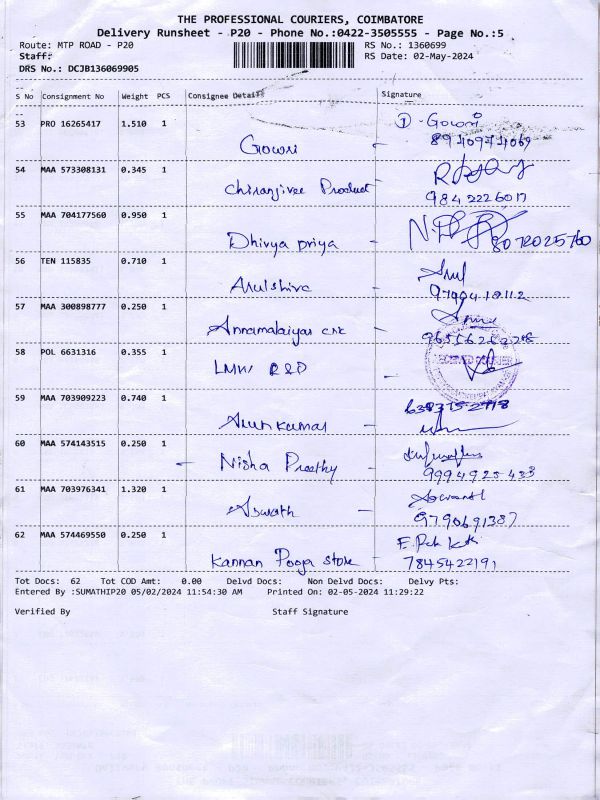 THE PROFESSIONAL COURIERS, COIMBATORE
Delivery Runsheet - P20 - Phone No.:0422-3505555 - Page No.:5
Route: MTP ROAD - P20 RS No.: 1360699
Staff: RS Date: 02-May-2024
DRS No.: DCJB136069905
S No Consignment No Weight PCS Consignee Details Signature
53 PRO 16265417 1.510 1 Gowri - D - Gowri
54 MAA 573308131 0.345 1 Chiranjivee Product
9842226017
55 MAA 704177560 0.950 1 Dhivya priya - 8072025760
56 TEN 115835 0.710 1 Arulshiva - Arul
57 MAA 300898777 0.250 1 Annamalaiyar -
58 POL 6631316 0.355 1 LMW R&D
59 MAA 703909223 0.740 1 Arunkumar -
60 MAA 574143515 0.250 1 - Nisha Preethy -
9994925433
61 MAA 703976341 1.320 1 Aswath -
9790691387
62 MAA 574469550 0.250 1 Kannan Pooja store -
7845422191
Tot Docs: 62 Tot COD Amt: 0.00 Delvd Docs: Non Delvd Docs: Delvy Pts:
Entered By :SUMATHIP20 05/02/2024 11:54:30 AM Printed On: 02-05-2024 11:29:22
Verified By Staff Signature